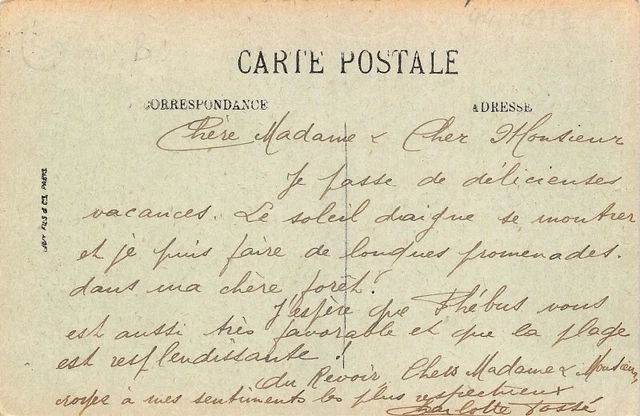 CARTE POSTALE
CORRESPONDANCE
ADRESSE
Chère Madame & Cher Monsieur
Je passe de délicieuses
vacances. Le soleil daigne se montrer
et je puis faire de longues promenades.
dans ma chère forêt!
J'espère que Phébus vous
est aussi très favorable et que la plage
est resplendissante!
Au Revoir Chers Madame & Monsieur,
croyez à mes sentiments les plus respectueux
Charlotte